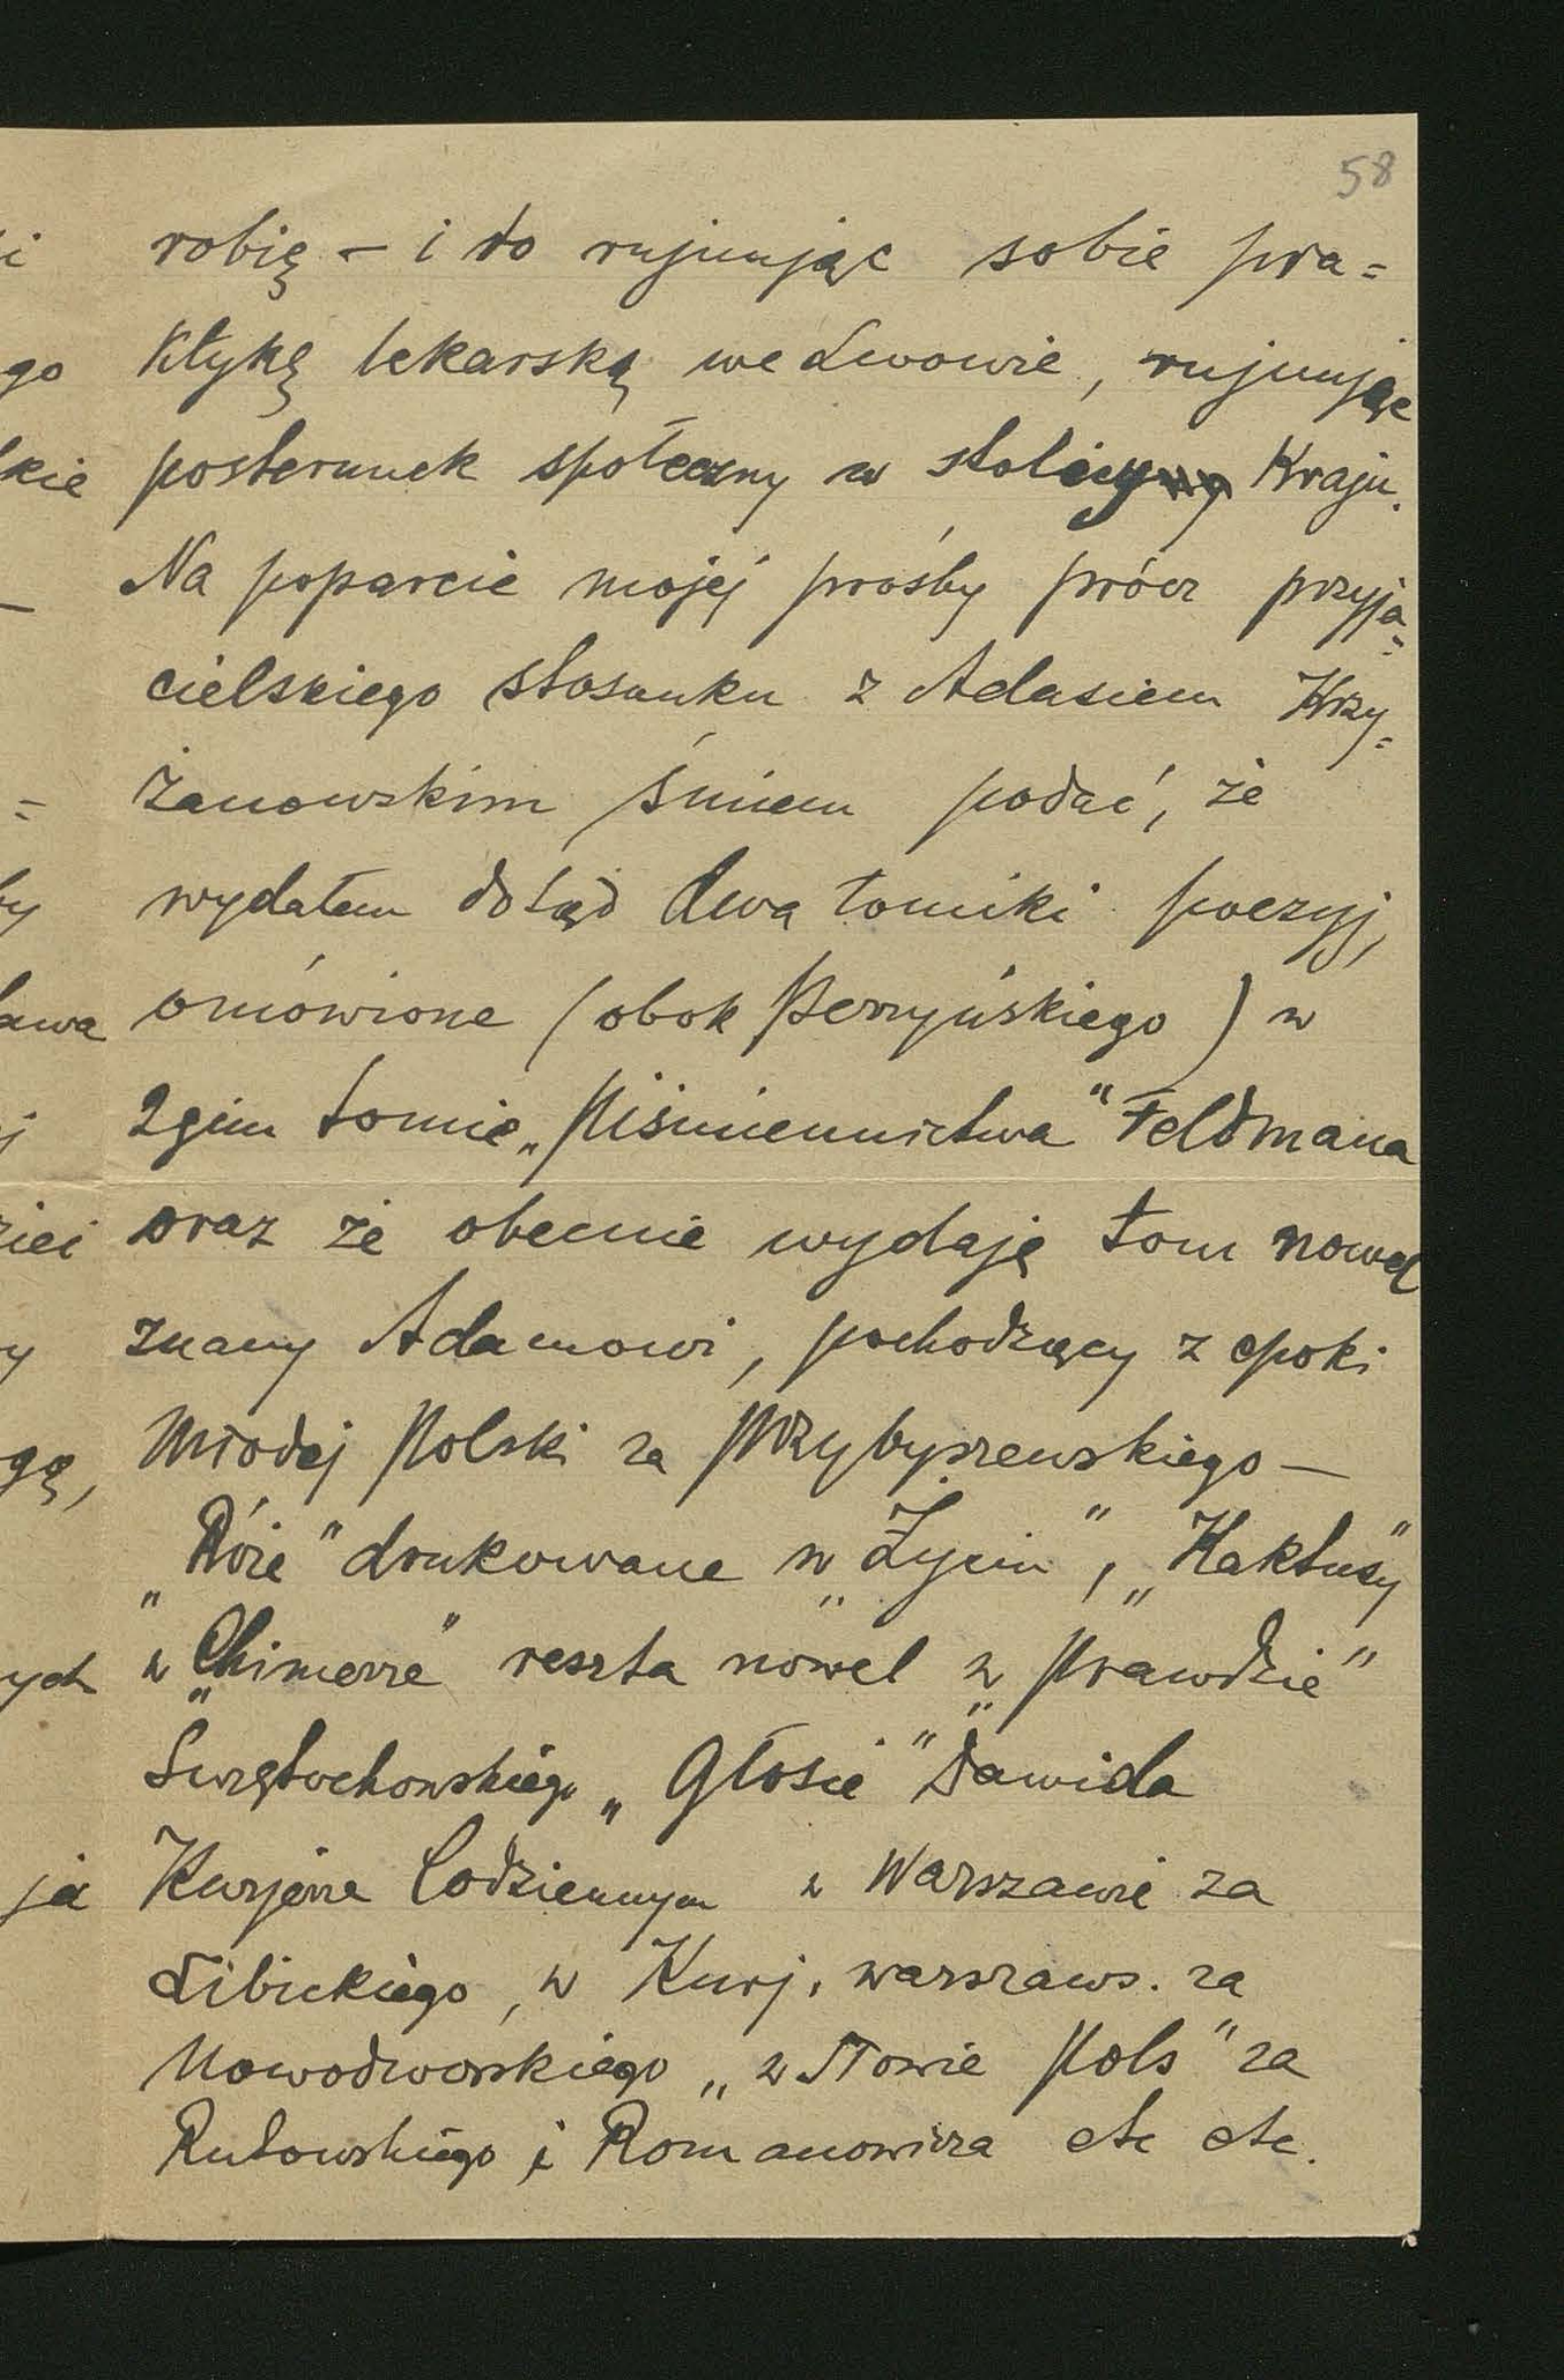 58
robię – i to rujnując sobie pra=
ktykę lekarską we Lwowie, rujnując
posterunek społeczny w stolicy Kraju.
Na poparcie mojej prośby prócz przyja=
cielskiego stosunku z Adasiem Krzy=
żanowskim śmiem podać, że
wydałem dotąd dwa tomiki poezyj,
omówione (obok Perzyńskiego) w
2gim tomie „Piśmiennictwa" Feldmana
oraz że obecnie wydaję tom nowel
znany Adamowi, pochodzący z epoki
Młodej Polski za Przybyszewskiego –
„Róże" drukowane w „Życiu", „Kaktusy"
w „Chimerze" reszta nowel w „Prawdzie"
Świętochowskiego „Głosie" Dawida
Kurjerze Codziennym w Warszawie za
Libickiego, w Kurj. warszaws. za
Nowodworskiego „w Słowie Pols" za
Rutowskiego i Romanowicza etc etc.
i
go
kie
–
=
by
ława
j
ziei
y
gę,
ych
ja